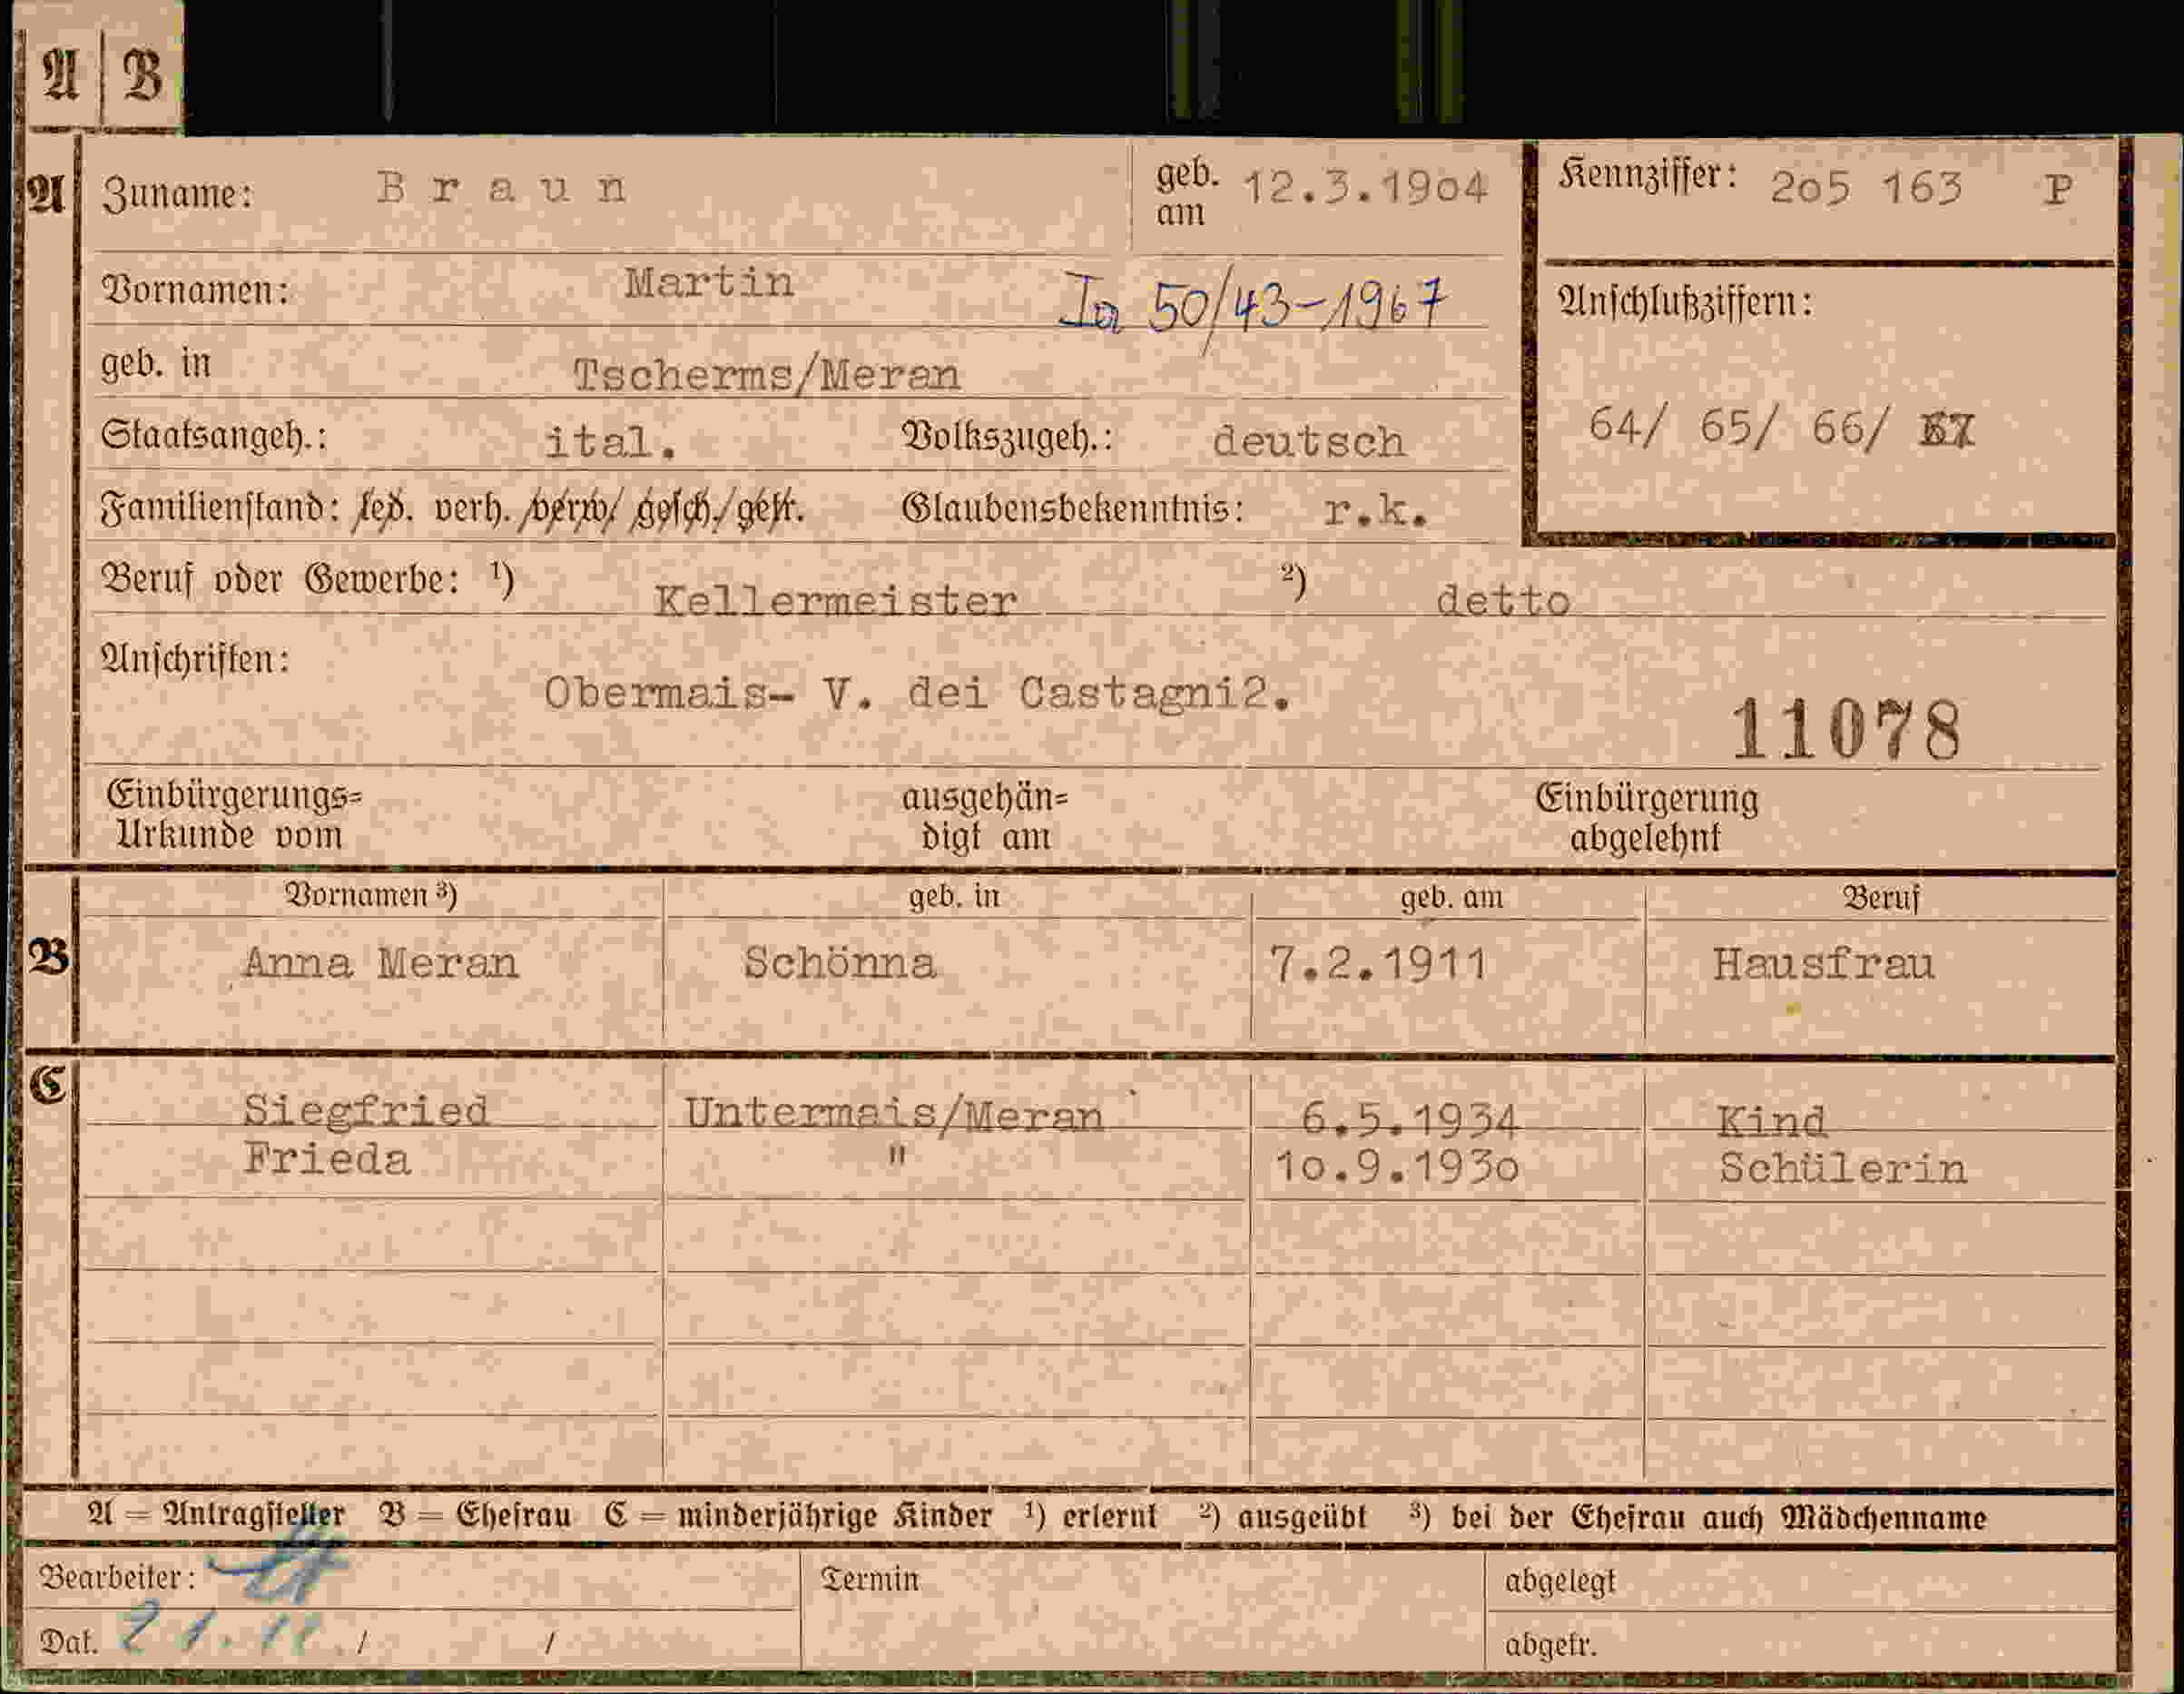 A B
A Zuname: Braun geb. am 12.3.1904 Kennziffer: 205 163 P
Vornamen: Martin Ia 50/43-1967 Anschlußziffern:
geb. in Tscherms/Meran
Staatsangeh.: ital. Volkszugeh.: deutsch 64/ 65/ 66/
Familienstand: led. verh. /verw/ gesch./getr. Glaubensbekenntnis: r.k.
Beruf oder Gewerbe: ¹) Kellermeister ²) detto
Anschriften: Obermais- V. dei Castagni2.
11078
Einbürgerungs= ausgehän= Einbürgerung
Urkunde vom digt am abgelehnt
Vornamen ³) geb. in geb. am Beruf
B Anna Meran Schönna 7.2.1911 Hausfrau
C Siegfried Untermais/Meran 6.5.1934 Kind
Frieda " 10.9.1930 Schülerin
A = Antragsteller B = Ehefrau C = minderjährige Kinder ¹) erlernt ²) ausgeübt ³) bei der Ehefrau auch Mädchenname
Bearbeiter: Termin abgelegt
Dat. 21. / / abgetr.